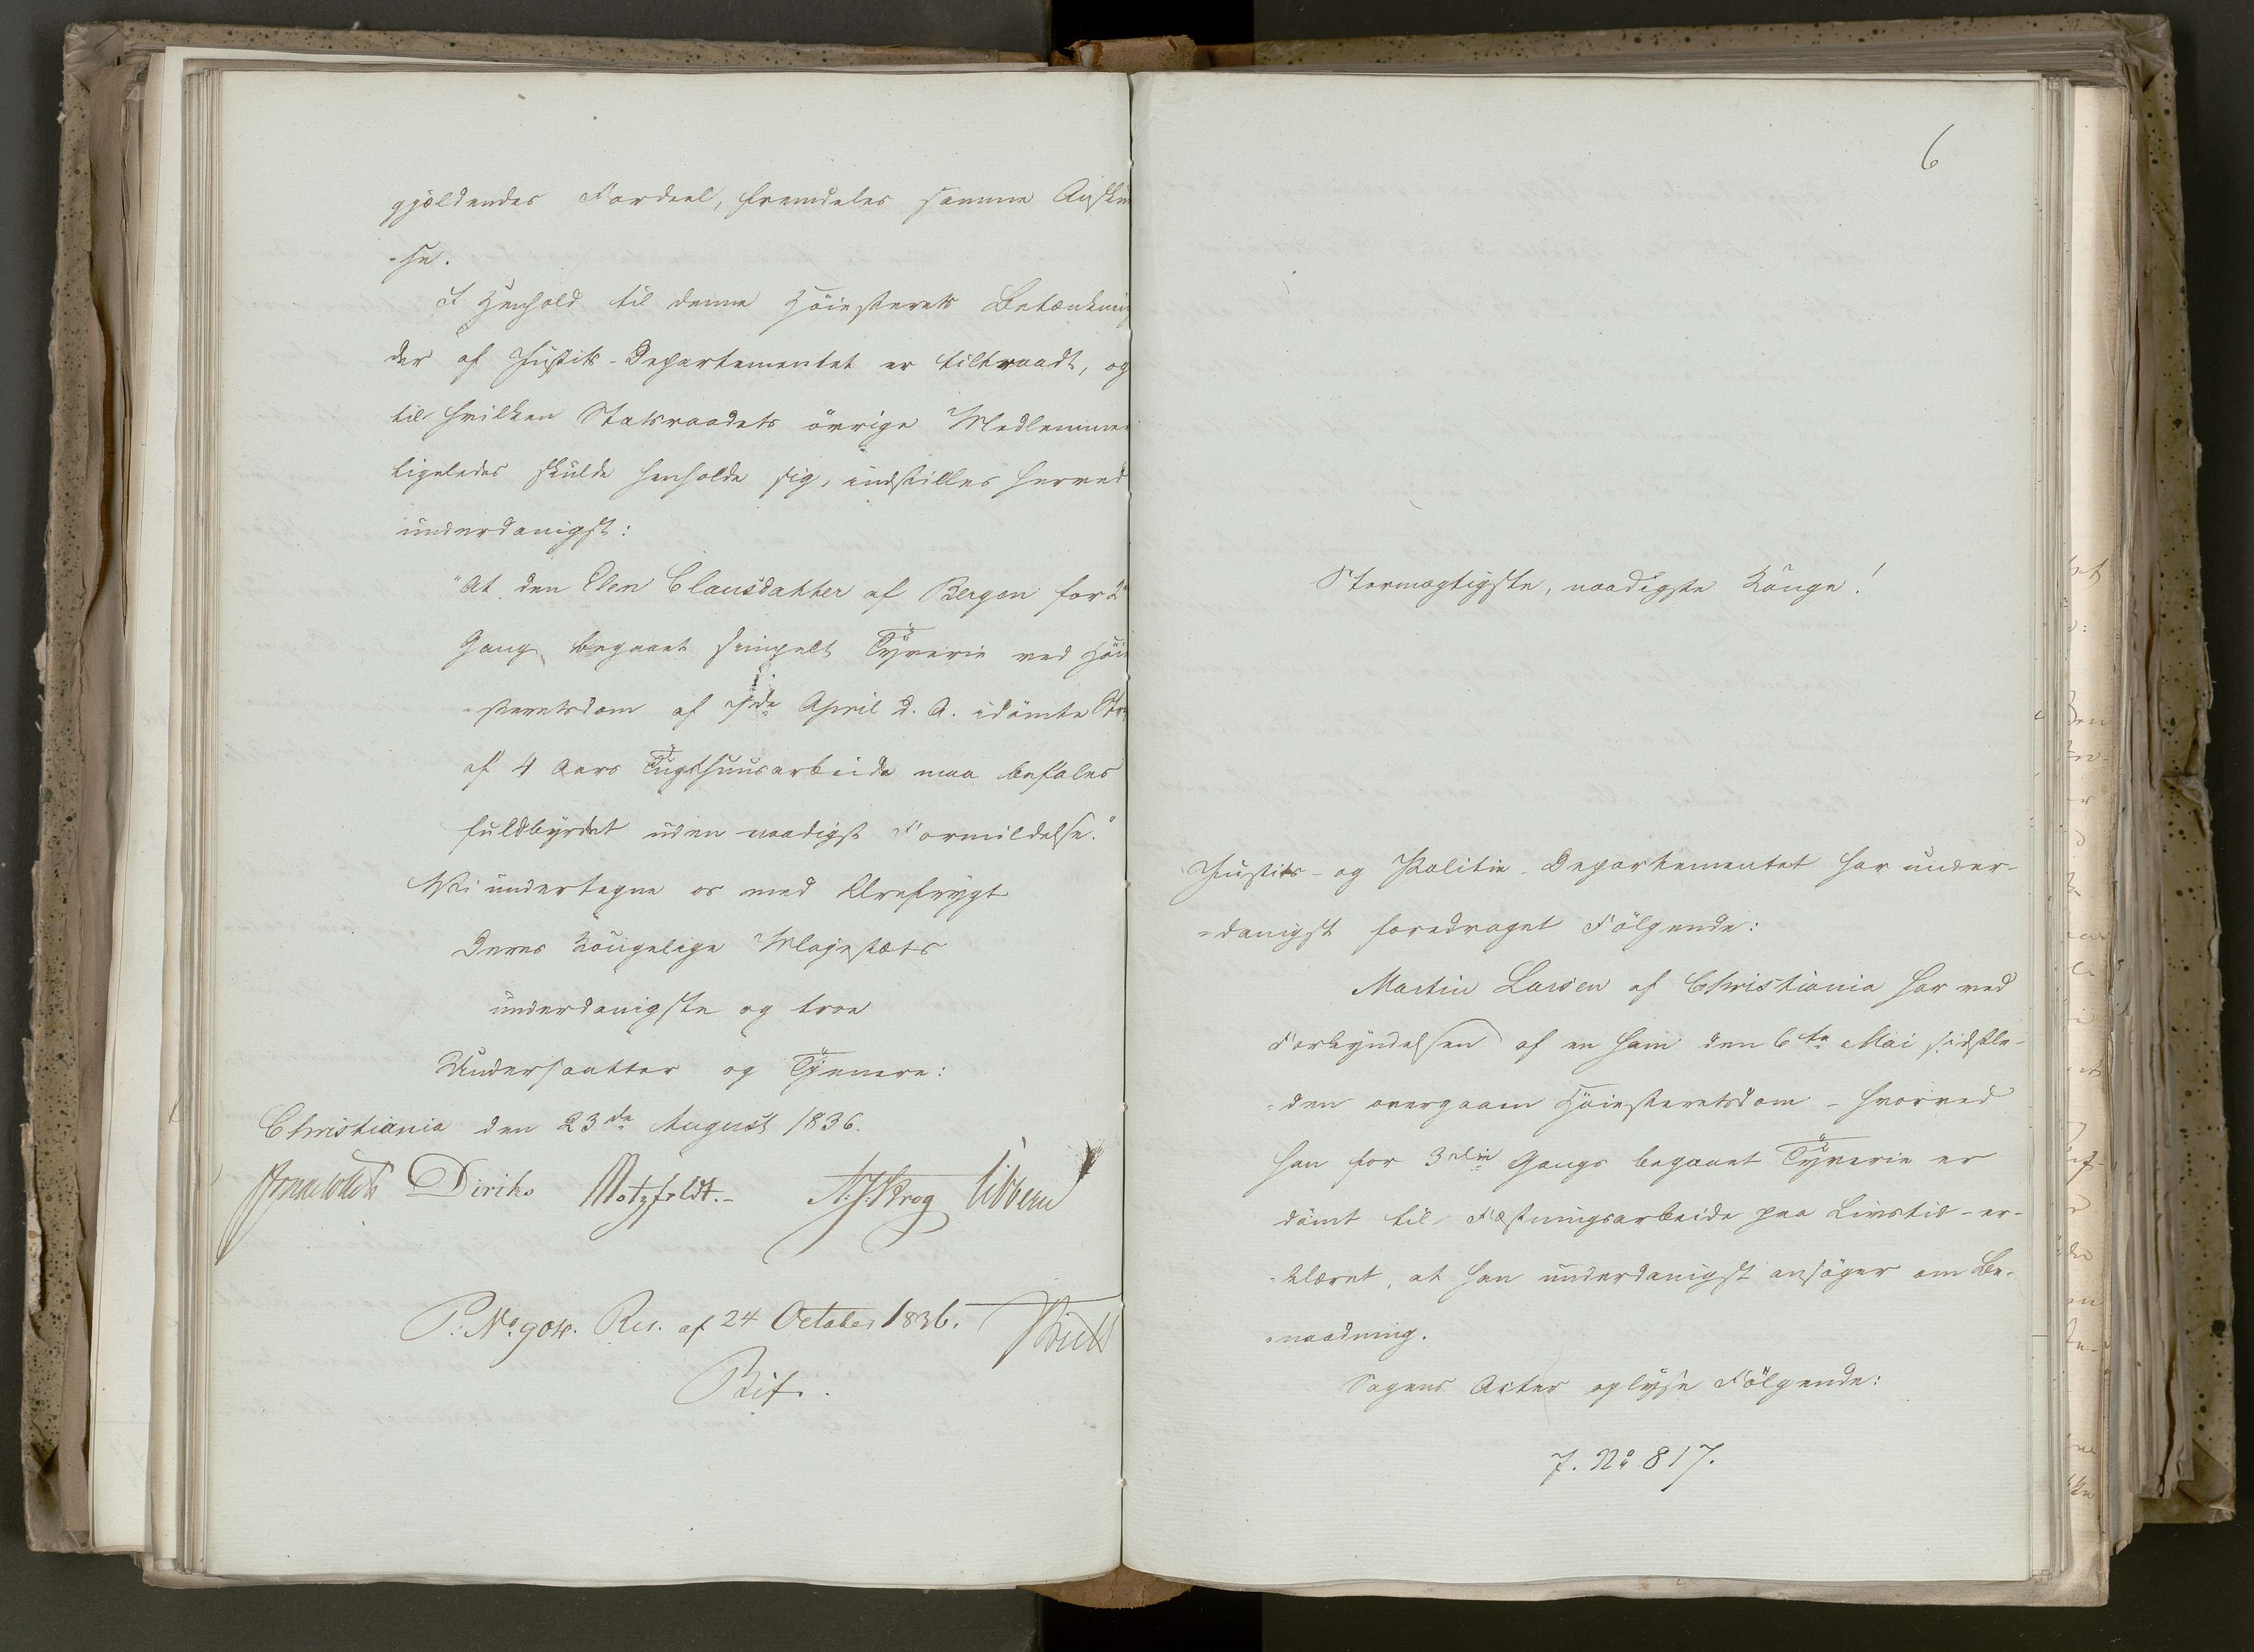 gjældendes Fordeel, fremdeles samme Ansku
-se.
I Henhold til denne Höiesterets Betænkning
der af Justits-Departementet er tiltraadt, og
til hvilken Statsraadets övrige Medlemmer
ligeledes skulde henholde sig, indstilles herved
underdanigst:
"At den Elen Clausdatter af Bergen for 2
Gang begaaet simpelt Tyverie ved Höie
-steretsdom af de April d. A. idömte Str
af 4 Aars Tugthuusarbeide maa befales
fuldbyrdet uden naadigst Formildelse."
Vi undertegne os med Ærefrygt
Deres Kongelige Majestæts
underdanigste og troe
Undersaatter og Tjenere:
Christiania den 23de August 1836.
Diriks Motzfeldt.- N:J:Krog Vibbern
P: No 904. Res. af 24 October 1836.
Bif.
6
Stormægtigste, naadigste Konge!
Justits- og Politie-Departementet har under-
-danigst foredraget Fölgende:
Martin Larsen af Christiania har ved
Forkyndelsen af en ham den 6te Mai sidstle-
-den overgaaen Höiesteretsdom - hvorved
han for 3die Gangs begaaet Tyverie er
dömt til Fæstningsarbeide paa Livstid - er-
-klæret, at han underdanigst ansöger om Be-
-naadning.
Sagens Acter oplyse Fölgende:
J. No 817.